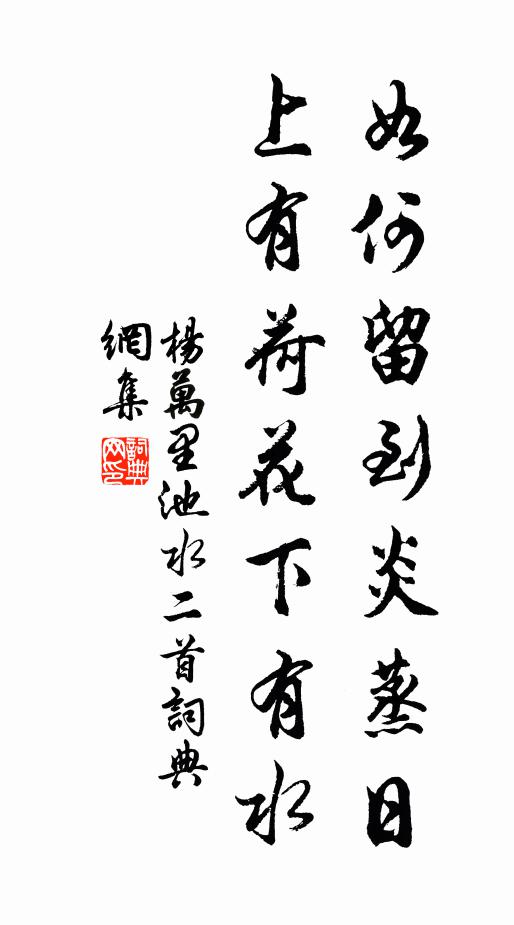 如何留到炎蒸日
上有荷花下有水
楊萬里池水二首詞典
網集
詞典
网印